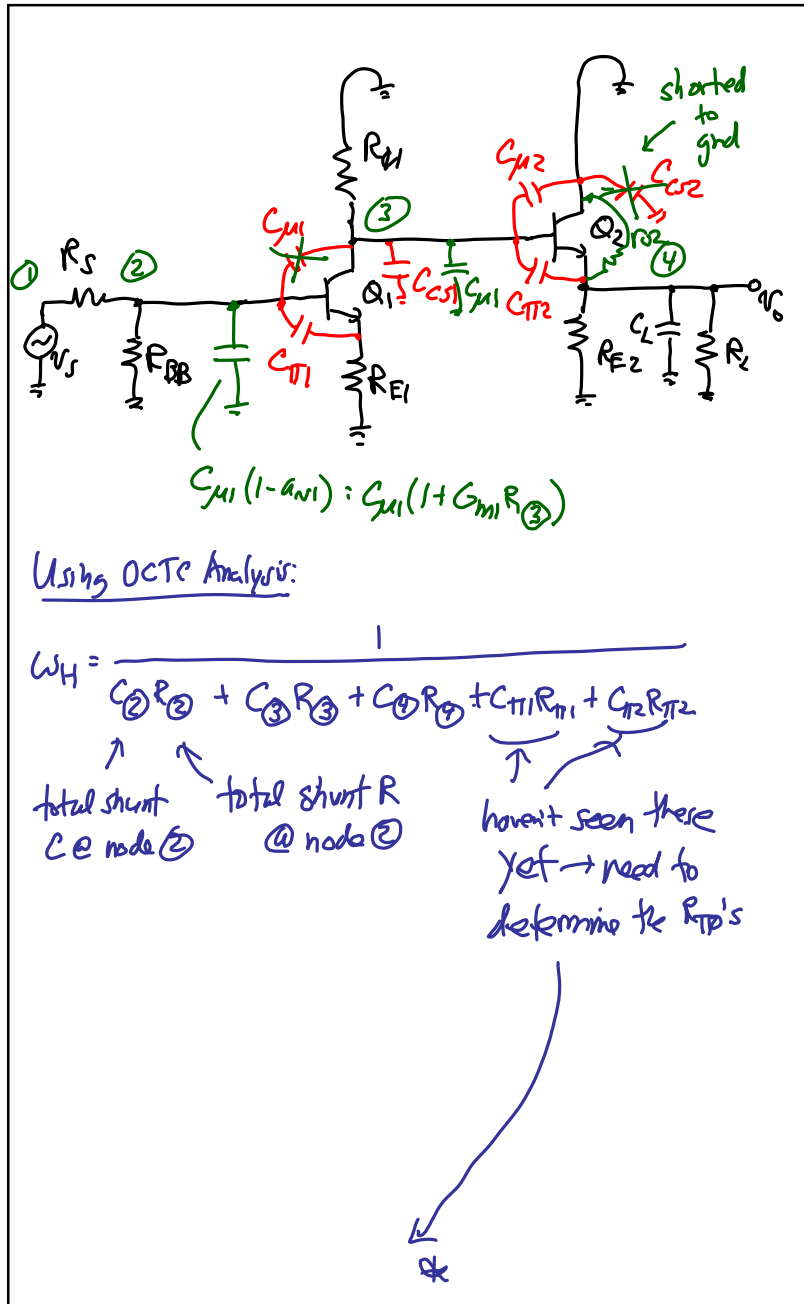 shorted
to
gnd
C_μ2
C_cs2
③
C_μ1
Q_2
r_o2
④
①
R_S
②
C_cs1
C_μ1
Q_1
C_π2
v_o
v_s
R_BB
C_π1
R_E1
R_E2
C_L
R_L
C_μ1(1-a_v1) = C_μ1(1+G_m1R_③)
Using OCTC Analysis:
ω_H = 1 / (C_②R_② + C_③R_③ + C_④R_④ + C_π1R_π1 + C_π2R_π2)
total shunt
C @ node ②
total shunt R
@ node ②
haven't seen these
yet → need to
determine the R_π's
*